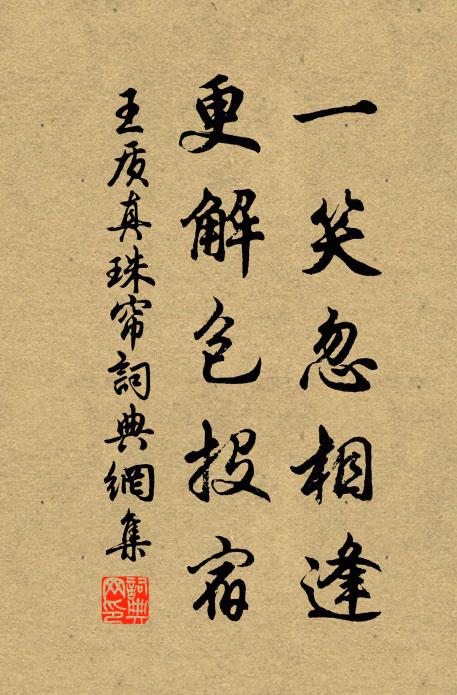 一笑忽相逢
更解包投宿
王质真珠帘詞典網集
詞典网印